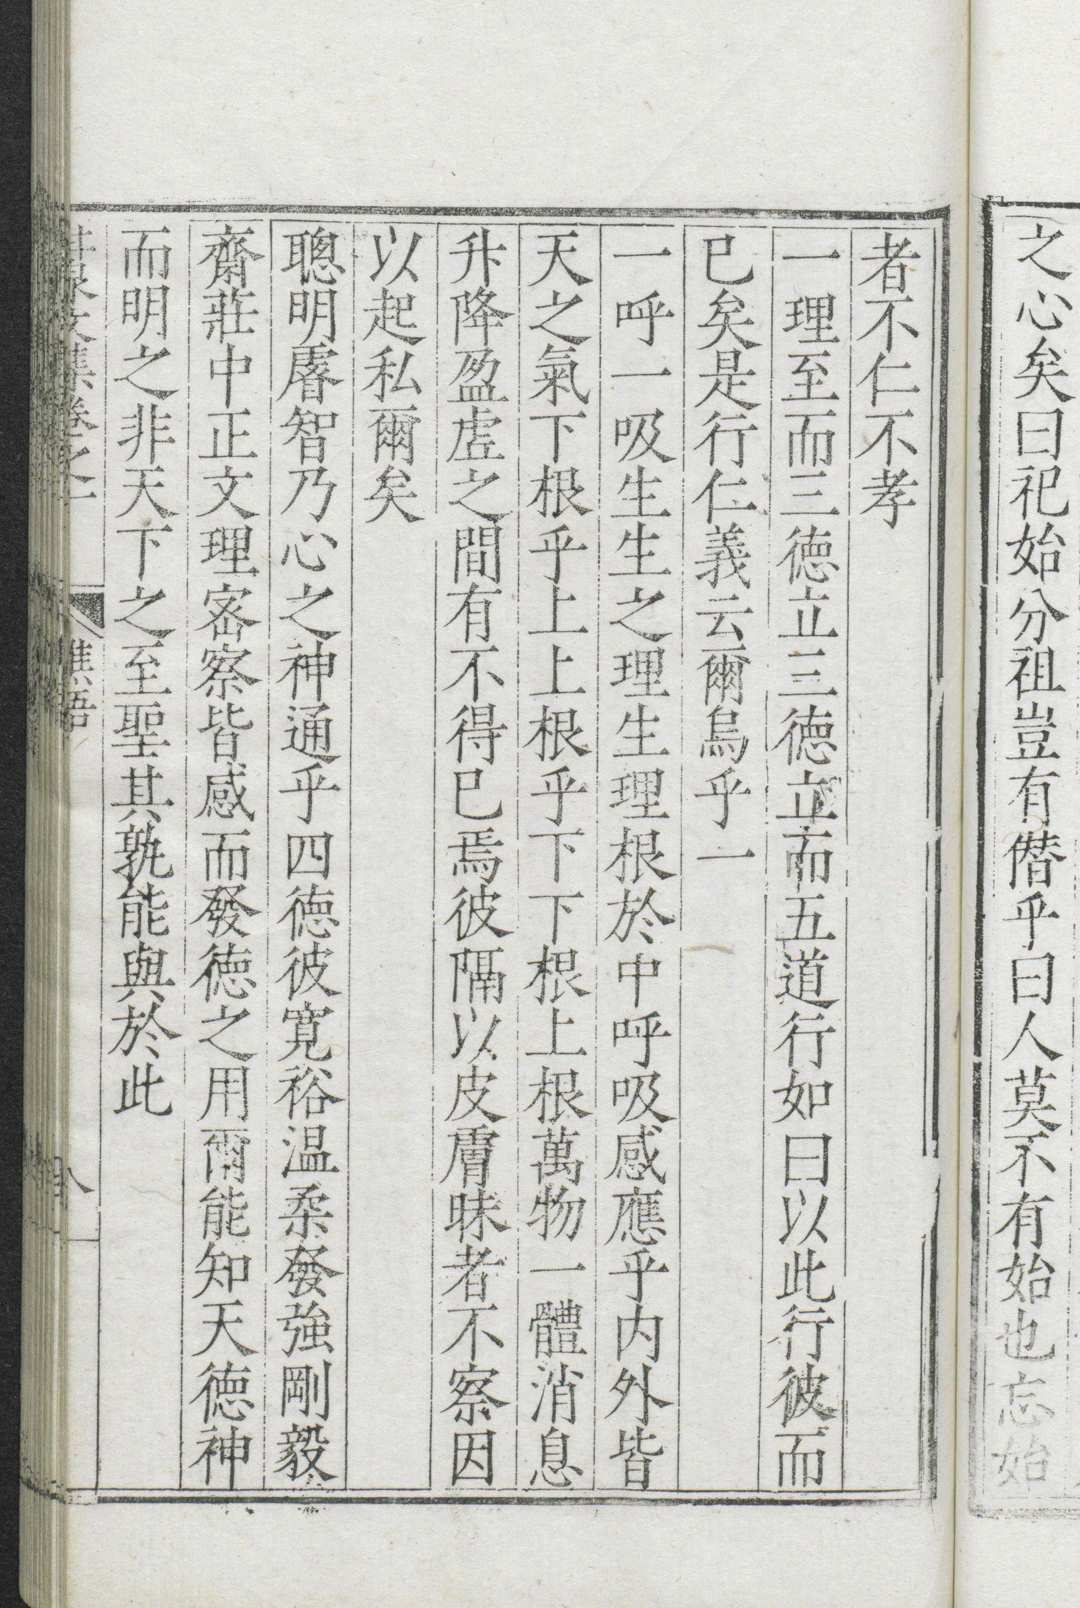 之心矣曰祀始分祖豈有僭乎曰人莫不有始也忘始
者不仁不孝
一理至而三德立三德立而五道行如曰以此行彼而
已矣是行仁義云爾烏乎一
一呼一吸生生之理生理根於中呼吸感應乎内外皆
天之氣下根乎上上根乎下下根上根萬物一體消息
升降盈虛之間有不得已焉彼隔以皮膚昧者不察因
以起私爾矣
聰明睿智乃心之神通乎四德彼寬裕温柔發強剛毅
齋莊中正文理密察皆感而發德之用爾能知天德神
而明之非天下之至聖其孰能與於此
泉文集卷之二
樵語
八